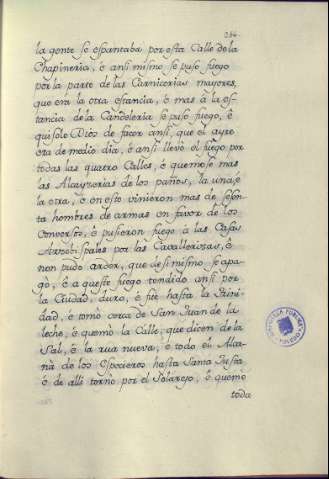 234
la gente se espantaba por esta Calle de la
Chapineria, é ansi mismo se puso fuego
por la parte de las Carnicerias mayores,
que era la otra estancia, é mas à la es-
tancia de la Candeleria se puso fuego, é
quisolo Dios de facer ansi, que el ayre
era de medio dia, é ansi llevò el fuego por
todas las quatro Calles, é quemose mas
las Alcayzerias de los paños, la una, é
la otra, é en esto vinieron mas de sesen-
ta hombres de armas en favor de los
Conversos, é pusieron fuego à las Casas
Arzobispales por las Cavallerizas, é
non pudo arder, que de si mismo se apa-
gò, é aqueste fuego tendido ansi por
la Ciudad, durò, é fué hasta la Trini-
dad, é tomò cerca de San Juan de la
leche, é quemò la Calle, que dicen de la
Sal, é la rua nueva, é todo el Alca-
nà de los Especieros hasta Santa Justa
é de alli tornò por el Solarejo, é quemò
toda
BIBLIOTECA PUBLICA
TOLEDO